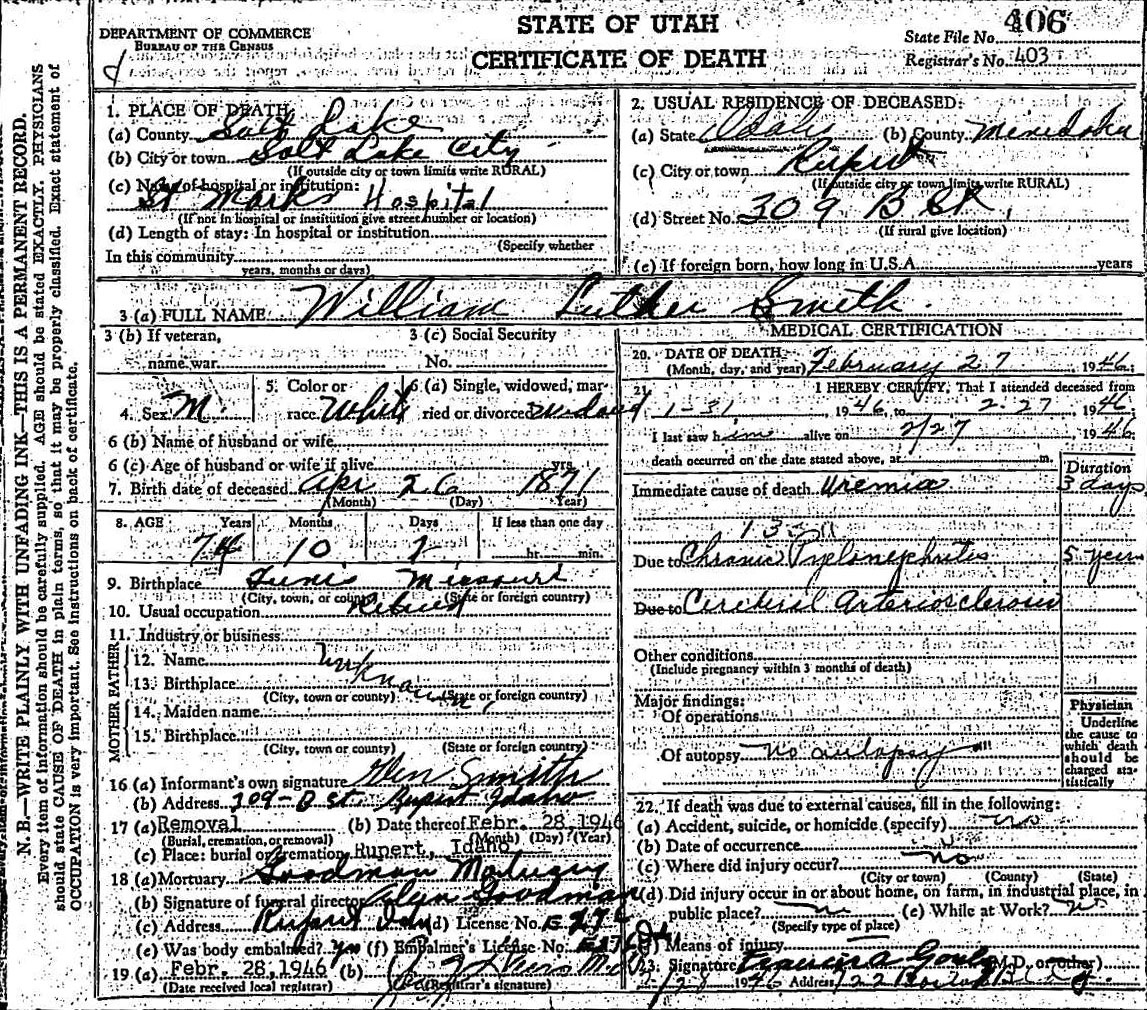 STATE OF UTAH
CERTIFICATE OF DEATH
DEPARTMENT OF COMMERCE
BUREAU OF THE CENSUS
State File No. 406
Registrar's No. 403
N. B.—WRITE PLAINLY WITH UNFADING INK—THIS IS A PERMANENT RECORD.
Every item of information should be carefully supplied. AGE should be stated EXACTLY. PHYSICIANS
should state CAUSE OF DEATH in plain terms, so that it may be properly classified. Exact statement of
OCCUPATION is very important. See instructions on back of certificate.
1. PLACE OF DEATH
(a) County Salt Lake
(b) City or town Salt Lake City
(If outside city or town limits write RURAL)
(c) Name of hospital or institution:
St Marks Hospital
(If not in hospital or institution give street number or location)
(d) Length of stay: In hospital or institution
(Specify whether
In this community
years, months or days)
2. USUAL RESIDENCE OF DECEASED:
(a) State Idaho (b) County Minidoka
(c) City or town Rupert
(If outside city or town limits write RURAL)
(d) Street No. 309 B St.
(If rural give location)
(e) If foreign born, how long in U.S.A. years
3 (a) FULL NAME William Luther Smith
3 (b) If veteran,
name war
3 (c) Social Security
No.
4. Sex M.
5. Color or
race White
6 (a) Single, widowed, mar-
ried or divorced Widowed
6 (b) Name of husband or wife
6 (c) Age of husband or wife if alive yrs.
7. Birth date of deceased Apr 26 1871
(Month) (Day) (Year)
8. AGE Years Months Days If less than one day
74 10 1 hr. min.
9. Birthplace Tunis Missouri
(City, town, or county) (State or foreign country)
10. Usual occupation Retired
11. Industry or business
FATHER
12. Name Unknown
13. Birthplace
(City, town or county) (State or foreign country)
MOTHER
14. Maiden name
15. Birthplace
(City, town or county) (State or foreign country)
16 (a) Informant's own signature Glen Smith
(b) Address 309-B St. Rupert Idaho
17 (a) Removal (b) Date thereof Febr. 28, 1946
(Burial, cremation, or removal) (Month) (Day) (Year)
(c) Place: burial or cremation Rupert, Idaho
18 (a) Mortuary Goodman Mortuary
(b) Signature of funeral director Glen Goodman
(c) Address Rupert Ida (d) License No. E276
(e) Was body embalmed? Yes (f) Embalmer's License No. E276
19 (a) Febr. 28, 1946 (b)
(Date received local registrar) (Registrar's signature)
MEDICAL CERTIFICATION
20. DATE OF DEATH:
(Month, day, and year) February 27 1946.
21. I HEREBY CERTIFY, That I attended deceased from
1-31 1946, to 2-27 1946
I last saw him alive on 2/27, 1946
death occurred on the date stated above, at m.
Duration
Immediate cause of death Uremia 3 days
Due to Chronic Pyelonephritis 5 years
Due to Cerebral Arteriosclerosis
Other conditions
(Include pregnancy within 3 months of death)
Major findings:
Of operations
Of autopsy no autopsy
Physician
Underline
the cause to
which death
should be
charged sta-
tistically
22. If death was due to external causes, fill in the following:
(a) Accident, suicide, or homicide (specify) no
(b) Date of occurrence
(c) Where did injury occur? no
(City or town) (County) (State)
(d) Did injury occur in or about home, on farm, in industrial place, in
public place? no (e) While at Work? no
(Specify type of place)
(f) Means of injury
23. Signature (M.D. or other)
1946 Address Boston Bldg